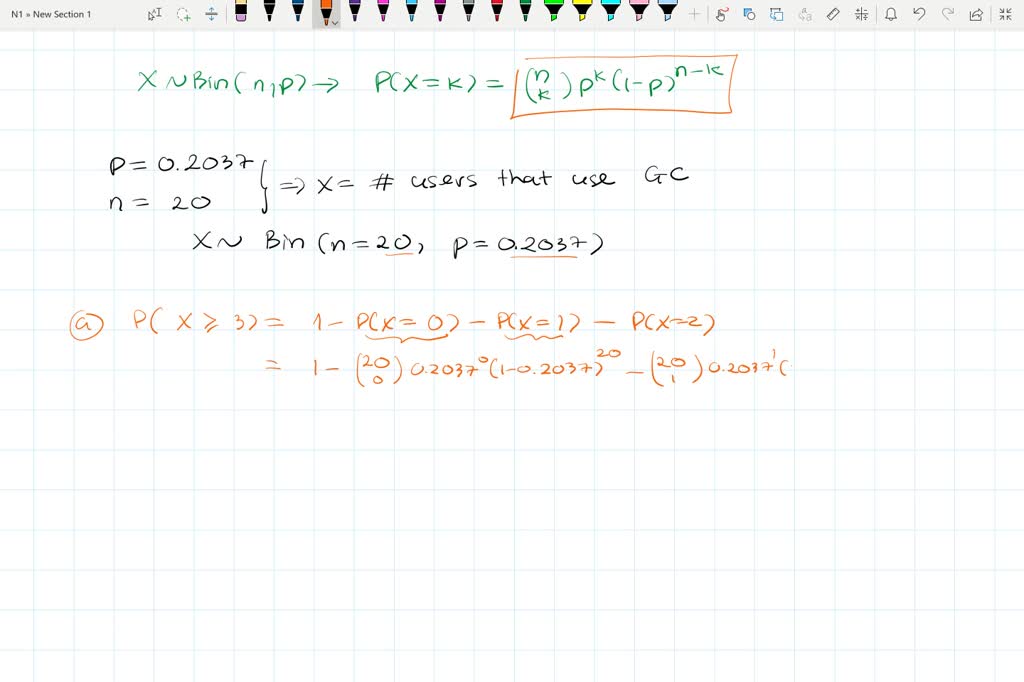 N1 » New Section 1
X ~ Bin(n,p) → P(X=k) = (n k) p^k (1-p)^{n-k}
p = 0.2037
n = 20 } ⇒ X = # users that use GC
X ~ Bin (n=20, p=0.2037)
(a) P(X ≥ 3) = 1 - P(X=0) - P(X=1) - P(X=2)
= 1 - (20 0) 0.2037^0 (1-0.2037)^20 - (20 1) 0.2037^1 (